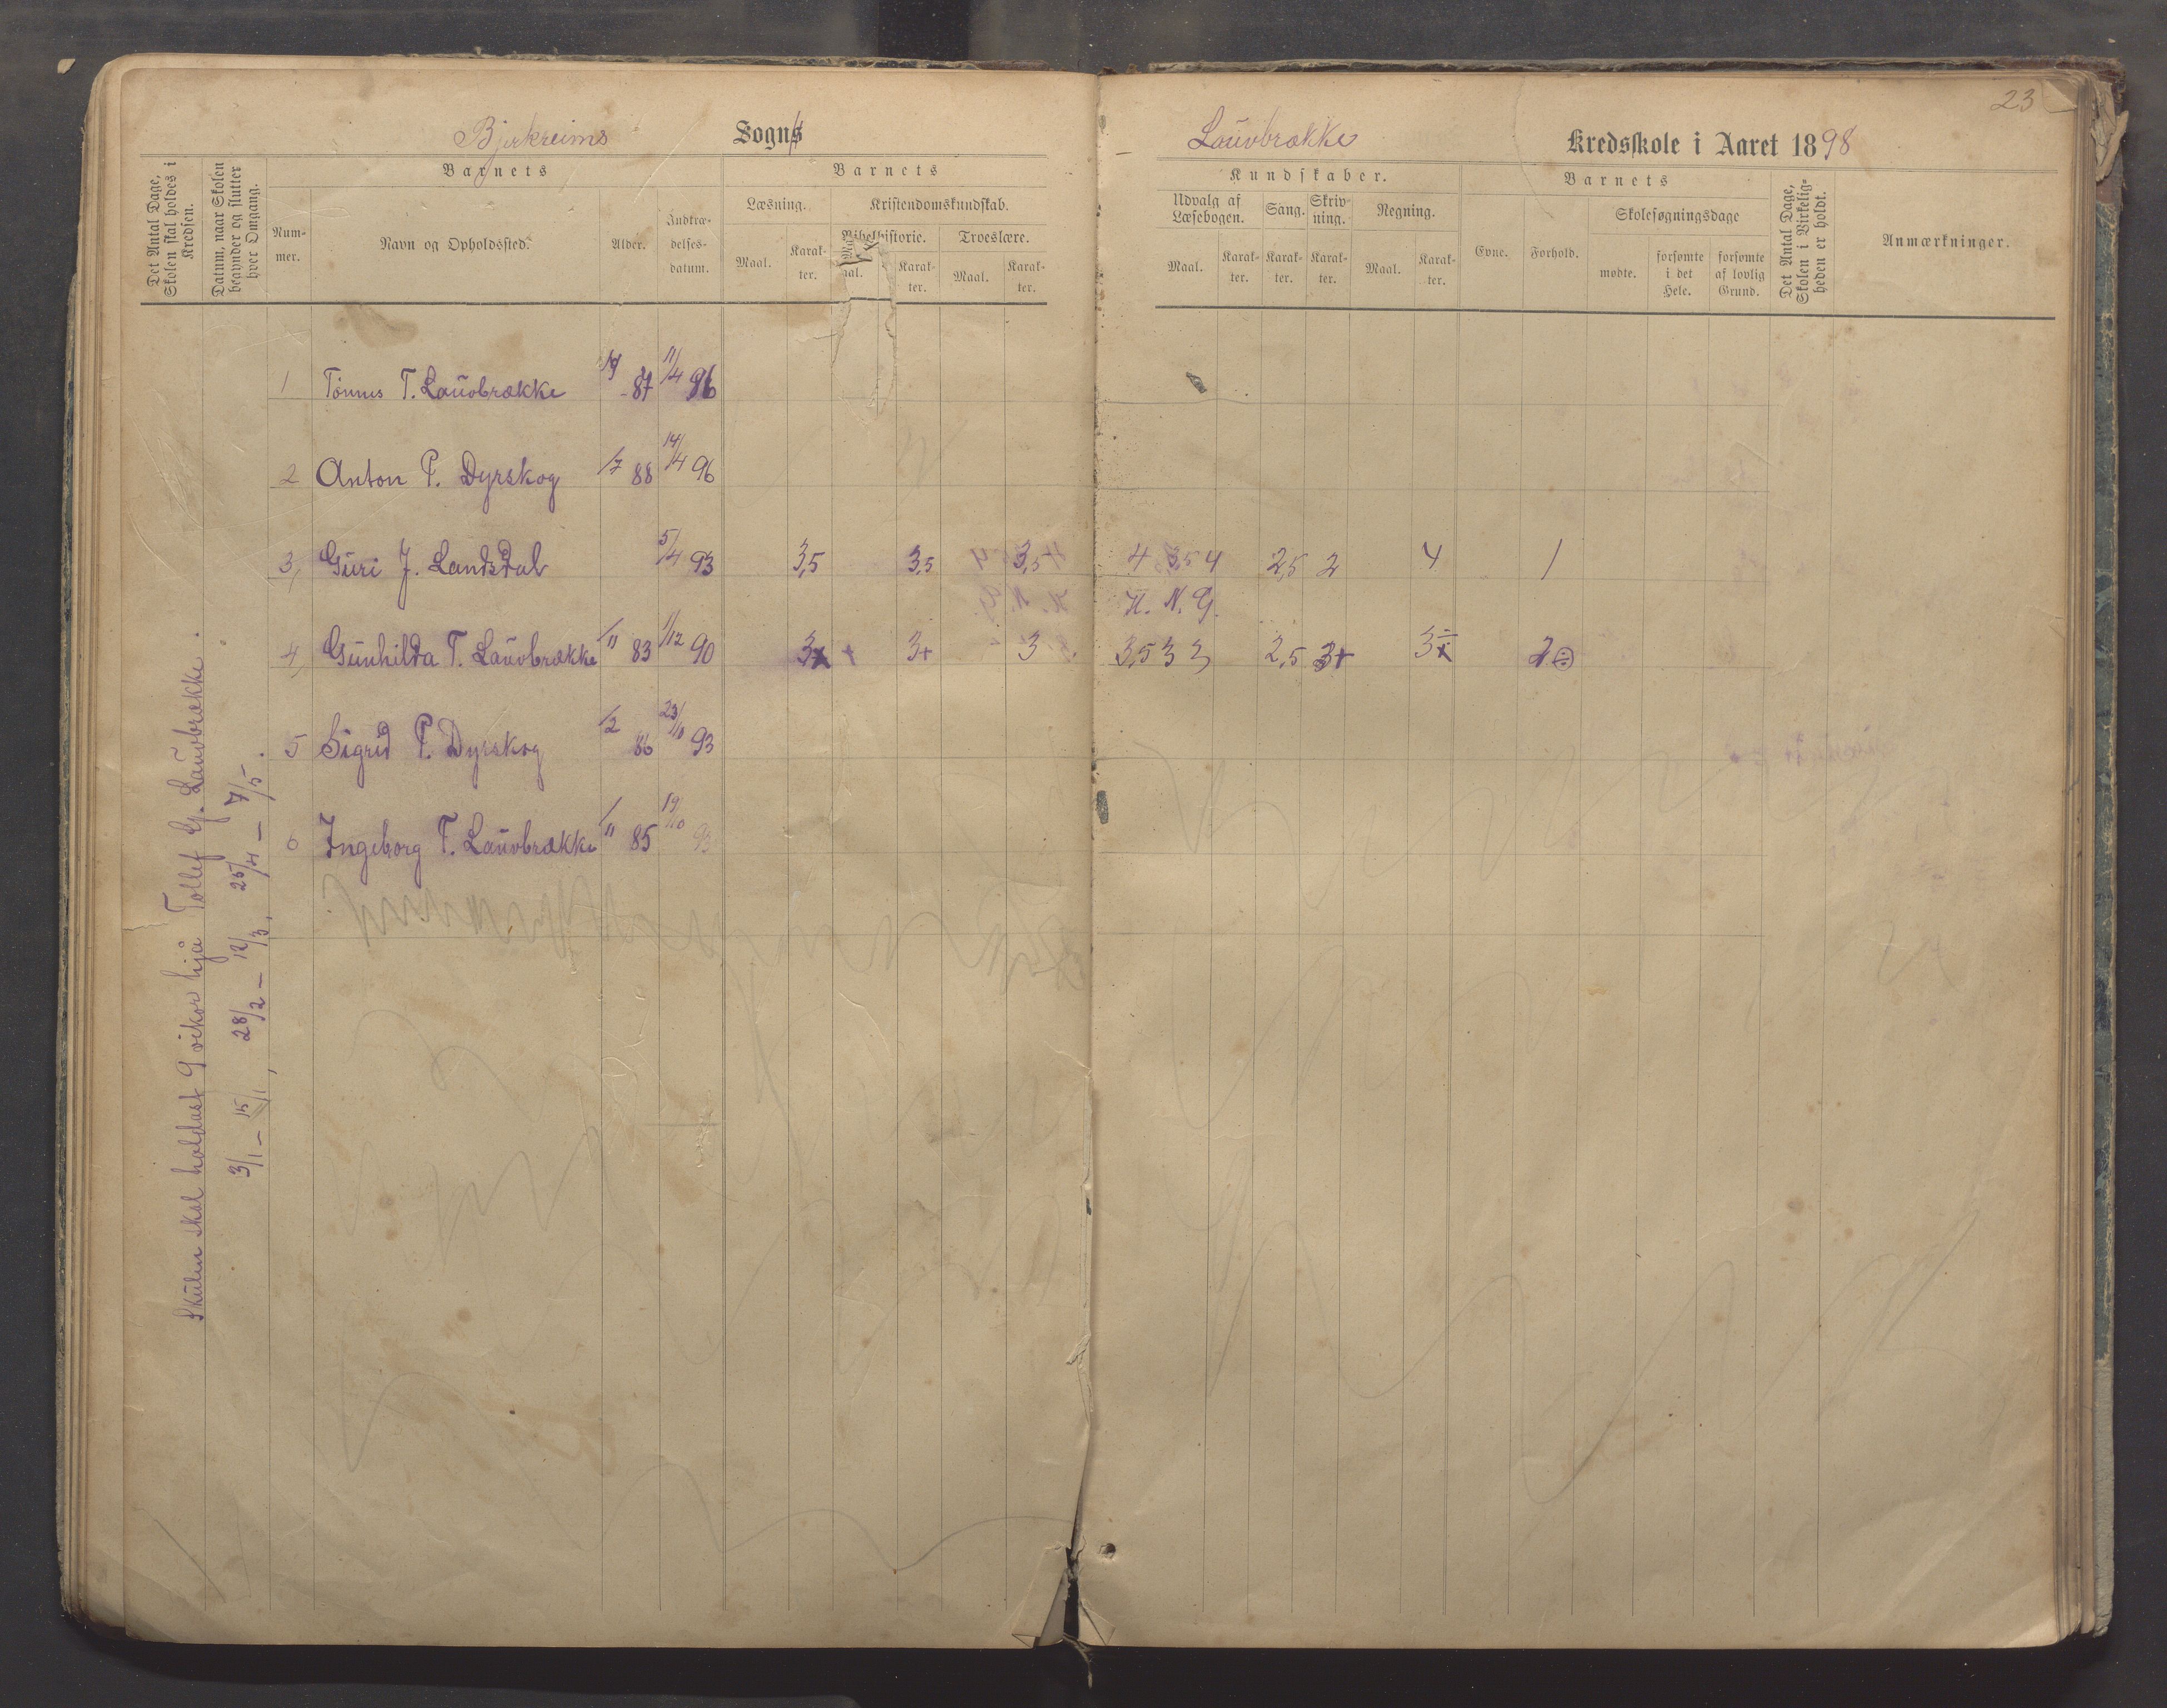 23
Bjerkreims Sogn
Lauvbrække Kredsskole i Aaret 1898
Det Antal Dage, Skolen skal holdes i Kredsen.
Datum, naar Skolen begynder og slutter hver Omgang.
Barnets
Nummer.
Navn og Opholdssted.
Alder.
Indtrædelsesdatum.
Barnets
Læsning.
Maal.
Karakter.
Kristendomskundskab.
Bibelhistorie.
Karakter.
Troeslære.
Maal.
Karakter.
Kundskaber.
Udvalg af Læsebogen.
Maal.
Karakter.
Sang.
Karakter.
Skrivning.
Karakter.
Regning.
Maal.
Karakter.
Barnets
Evne.
Forhold.
Skolesøgningsdage
mødte.
forsømte i det Hele.
forsømte af lovlig Grund.
Det Antal Dage, Skolen i Virkeligheden er holdt.
Anmærkninger.
1 Tønnes T. Lauvbrække 87 11/4 96
2 Anton P. Dyrskog /7 88 14/4 96
3, Guri J. Landsdal 5/4 93 3,5 3,5 3,5 4 3,5 4 2,5 2 4 1
H. N. G.
4, Gunhilda T. Lauvbrække /11 83 1/12 90 3+ 3+ 3 3,5 3 3 2,5 3+ 3 2
5 Sigrid P. Dyrskog /2 86 23/10 93
6 Ingeborg T. Lauvbrække /11 85 19/10 93
Skulen skal haldast 9 vikor hjå Tollef G. Lauvbrække.
3/1 – 15/1, 28/2 – 12/3, 25/4 – 7/5.